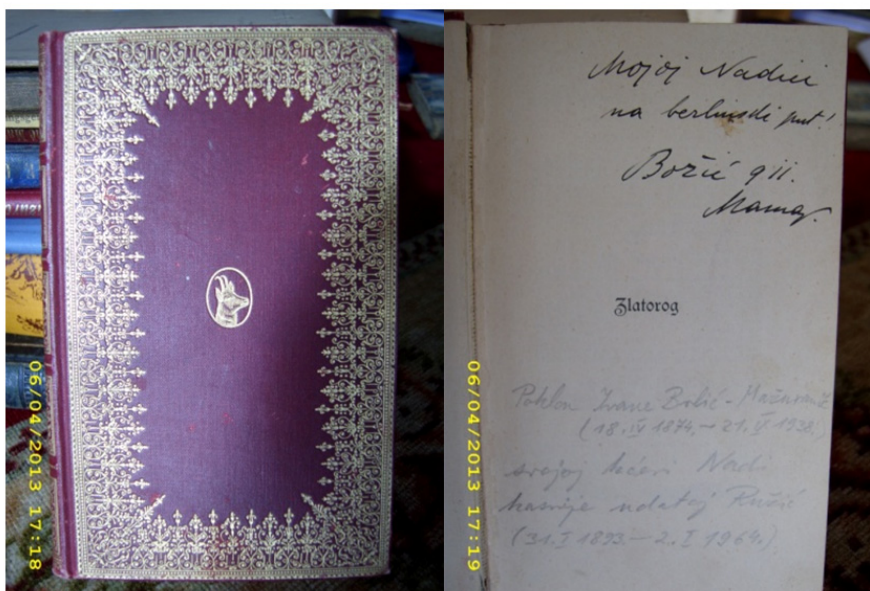 06/04/2013 17:18
Mojoj Nadici
na berlinski put!
Božić 911.
Mama.
Zlatorog
Poklon Ivane Brlić-Mažuranić
(18. IV 1874. – 21. IX 1938.)
svojoj kćeri Nadi
kasnije udatoj Ružić
(31. I 1893. – 2. I 1964.)
06/04/2013 17:19